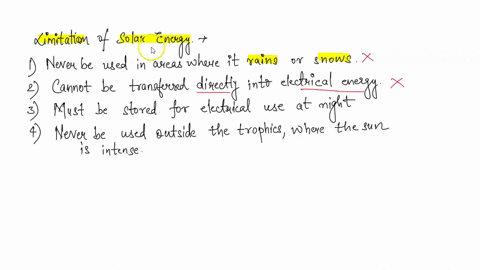 Limitation of Solar Energy. →
1) Never be used in areas where it rains or snows. ×
2) Cannot be transferred directly into electrical energy. ×
3) Must be stored for electrical use at night
4) Never be used outside the trophics, where the sun
is intense.